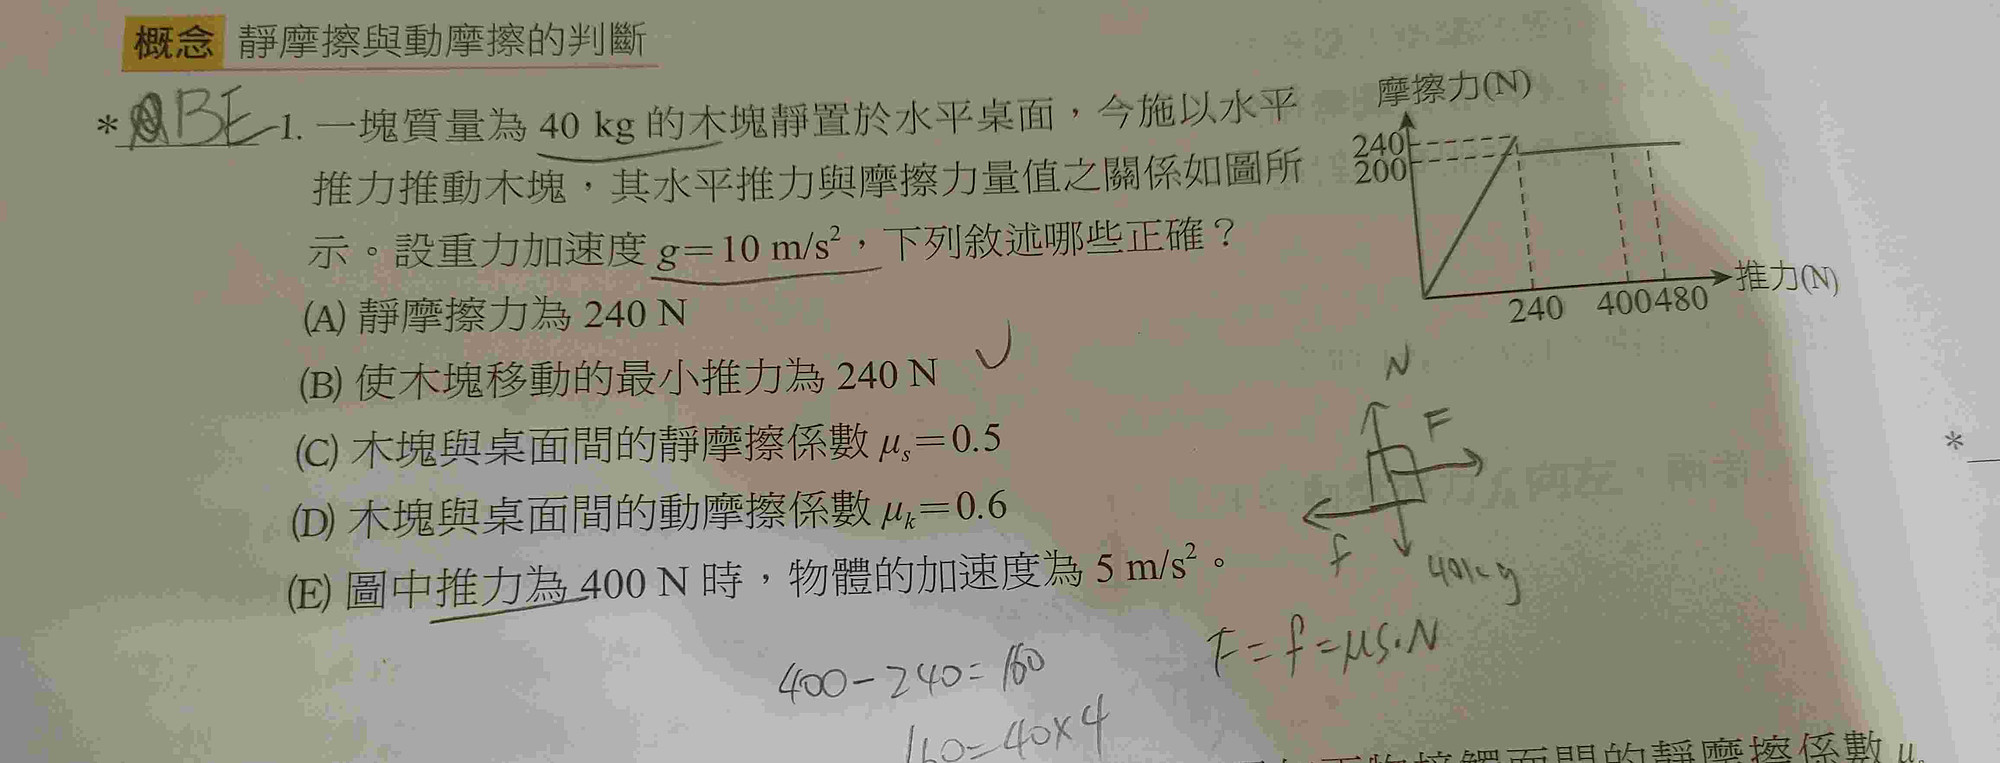 概念 靜摩擦與動摩擦的判斷
* ABE 1. 一塊質量為 40 kg 的木塊靜置於水平桌面，今施以水平
推力推動木塊，其水平推力與摩擦力量值之關係如圖所
示。設重力加速度 g=10 m/s²，下列敘述哪些正確？
(A) 靜摩擦力為 240 N
(B) 使木塊移動的最小推力為 240 N
(C) 木塊與桌面間的靜摩擦係數 μs=0.5
(D) 木塊與桌面間的動摩擦係數 μk=0.6
(E) 圖中推力為 400 N 時，物體的加速度為 5 m/s²。
摩擦力(N)
240
200
240 400 480 推力(N)
N
F
f
40kg
F=f=μs·N
400-240=160
160=40×4
*
的靜摩擦係數 μ